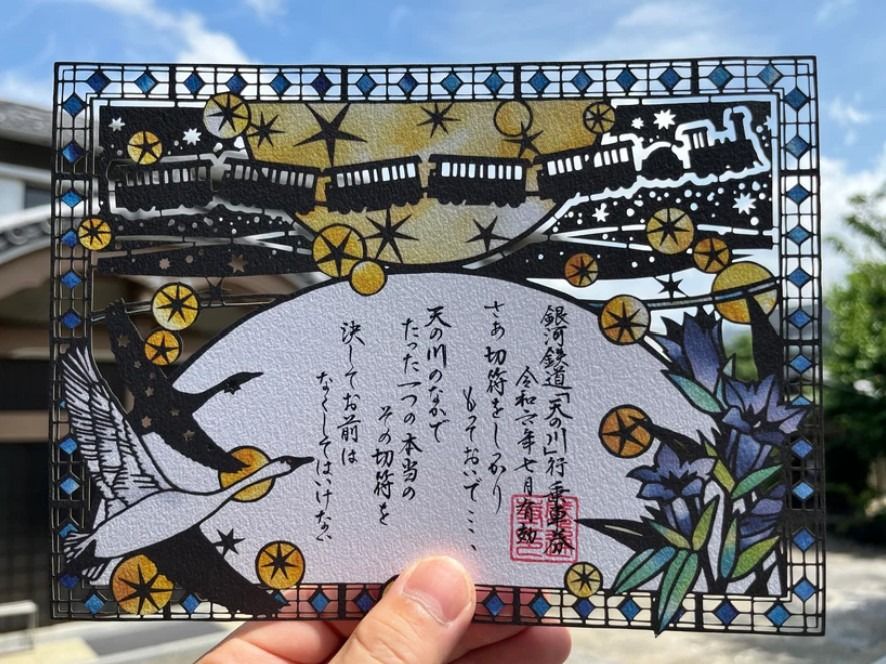 銀河鉄道「天の川」行 乗車券
令和六年七月有効
さあ切符をしっかり
もっておいで……、
天の川のなかで
たった一つの本当の
その切符を
決してお前は
なくしてはいけない